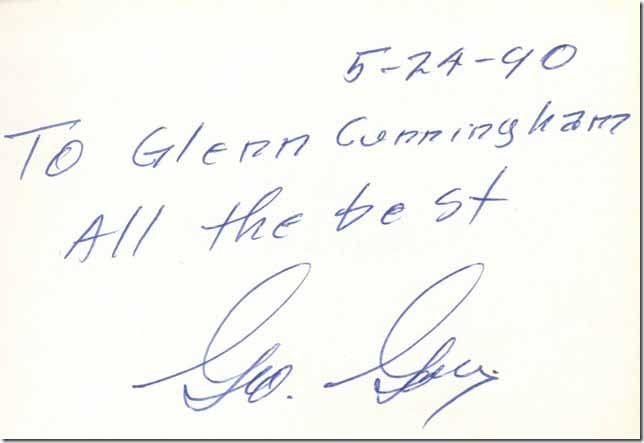 5-24-90
To Glenn Cunningham
All the best
Geo.